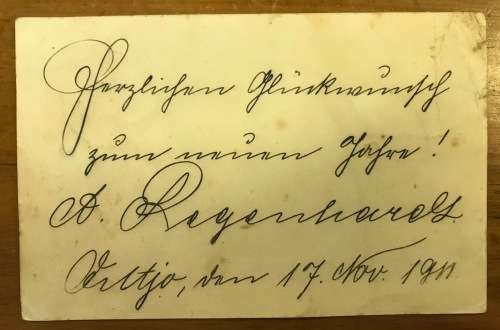 Herzlichen Glückwunsch
zum neuen Jahre!
A. Regenhardt.
den 17. Nov. 1911